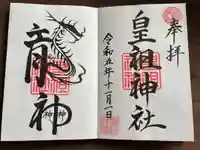 奉拝
皇祖神社
令和五年十一月一日
龍神